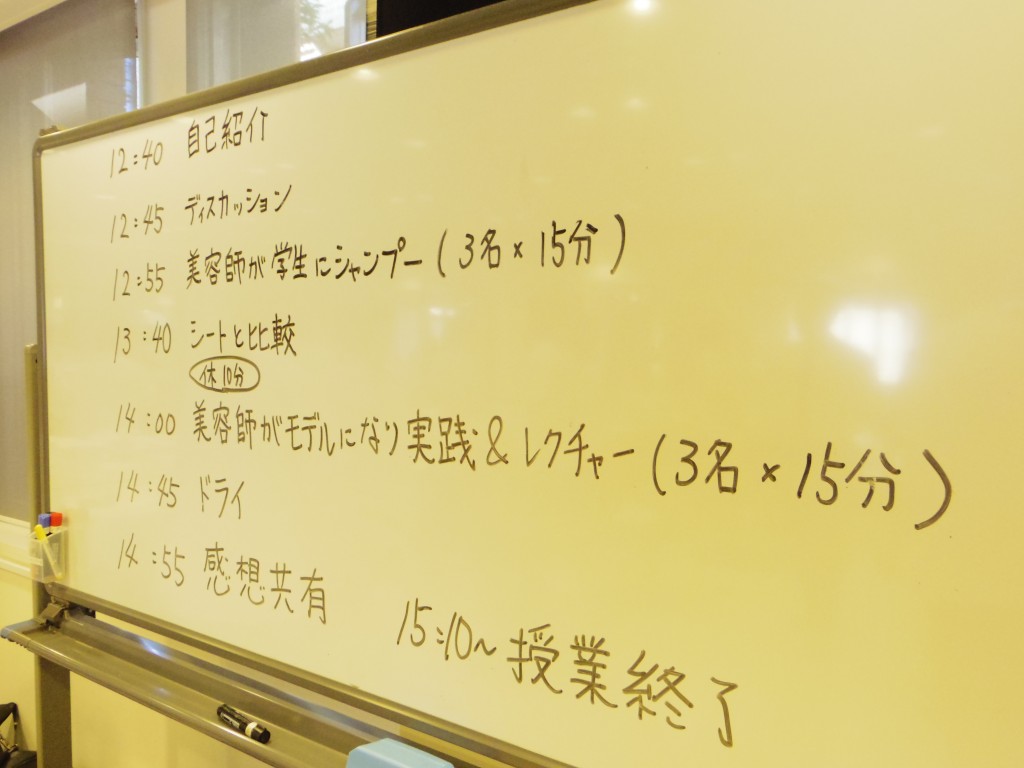 12:40 自己紹介
12:45 ディスカッション
12:55 美容師が学生にシャンプー(3名×15分)
13:40 シートと比較
休10分
14:00 美容師がモデルになり実践&レクチャー(3名×15分)
14:45 ドライ
14:55 感想共有
15:10~授業終了